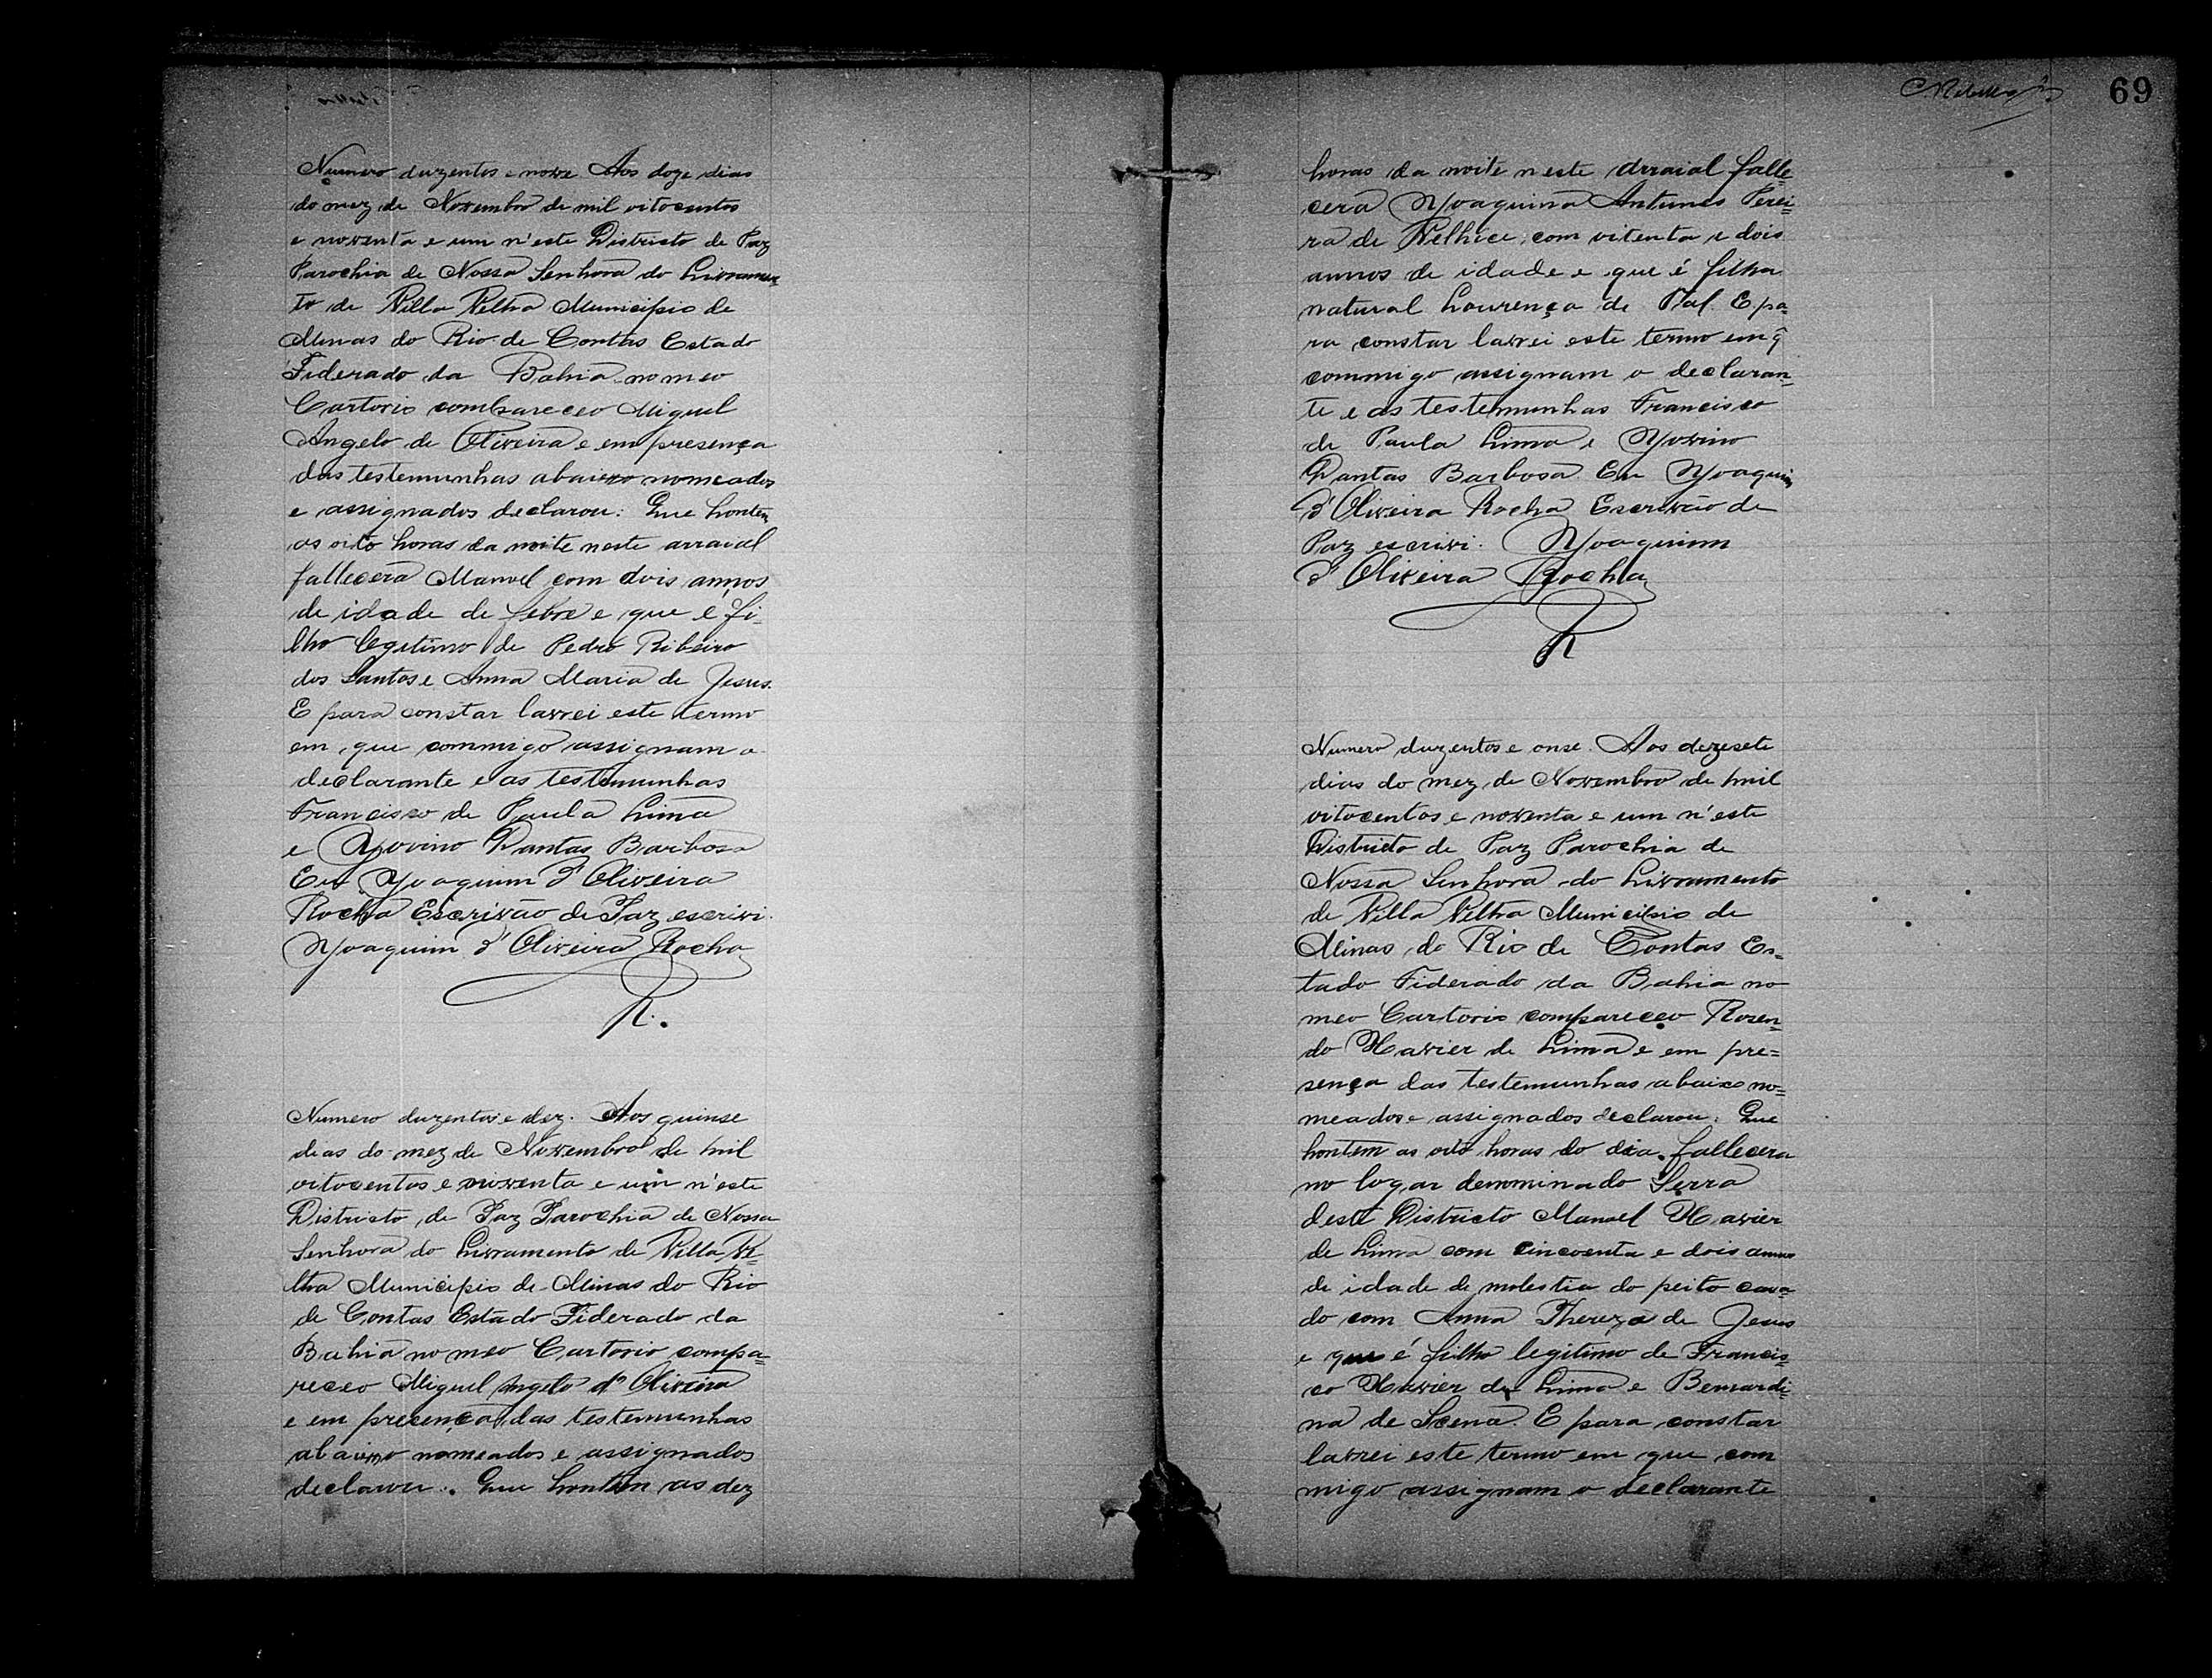 Numero duzentos e nove Aos doze dias
do mez de Novembro de mil oitocentos
e noventa e um n'este Districto de Paz
Parochia de Nossa Senhora do Livramen
to de Villa Velha Municipio de
Minas do Rio de Contas Estado
Fiderado da Bahia no meo
Cartorio compareceo Miguel
Angelo de Oliveira e em presença
das testemunhas abaixo nomeados
e assignados declarou: Que hontem
as oito horas da noite neste arraial
fallecera Manoel com dois annos
de idade de febre e que é fi-
lho legitimo de Pedro Ribeiro
dos Santos e Anna Maria de Jesus.
E para constar lavrei este termo
em que commigo assignam o
declarante e as testemunhas
Francisco de Paula Lima
e Jovino Dantas Barbosa
Eu Joaquim d'Oliveira
Rocha Escrivão de Paz escrivi.
Joaquim d'Oliveira Rocha
R.
Numero duzentos e dez. Aos quinse
dias do mez de Novembro de mil
oitocentos e noventa e um n'este
Districto de Paz Parochia de Nossa
Senhora do Livramento de Villa Ve=
lha Municipio de Minas do Rio
de Contas Estado Fiderado da
Bahia no meo Cartorio compa=
receo Miguel Angelo d'Oliveira
e em presença das testemunhas
abaixo nomeados e assignados
declarou. Que hontem as dez
69
horas da noite neste arraial falle=
cera Joaquina Antunes Perei=
ra de Velhice, com oitenta e dois
annos de idade e que é filha
natural Lourença de Tal. E pa=
ra constar lavrei este termo em q̃
commigo assignam o declaran=
te e as testemunhas Francisco
de Paula Lima e Jovino
Dantas Barbosa Eu Joaquim
d'Oliveira Rocha Escrivão de
Paz escrivi. Joaquim
d'Oliveira Rocha
R
Numero duzentos e onse. Aos dezesete
dias do mez de Novembro de mil
oitocentos e noventa e um n'este
Districto de Paz Parochia de
Nossa Senhora do Livramento
de Villa Velha Municipio de
Minas do Rio de Contas Es=
tado Fiderado da Bahia no
meo Cartorio compareceo Rosen=
do Xavier de Lima e em pre=
sença das testemunhas abaixo no=
meados e assignados declarou: Que
hontem as oito horas do dia fallecera
no logar denominado Serra
deste Districto Manoel Xavier
de Lima com cincoenta e dois annos
de idade de molestia do peito casa=
do com Anna Thereza de Jesus
e que é filho legitimo de Francis=
co Xavier de Lima e Bernardi=
na de Scena. E para constar
lavrei este termo em que com
migo assignam o declarante